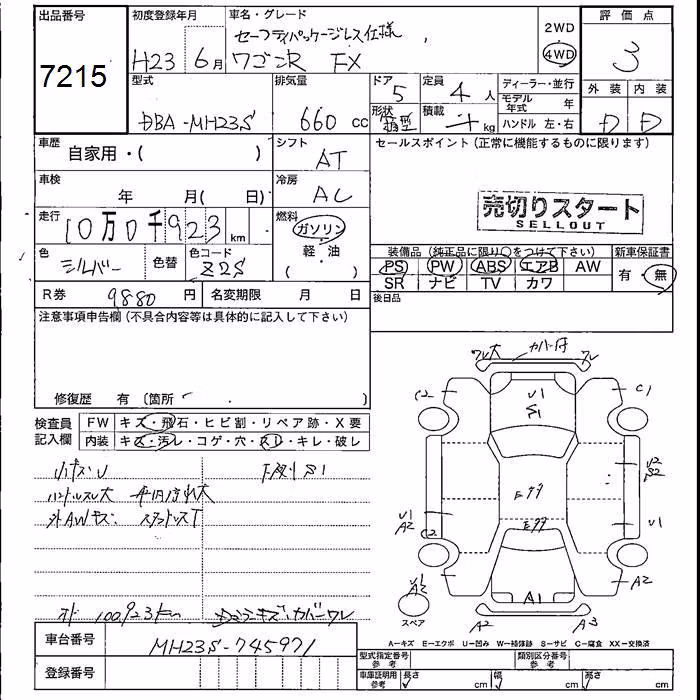 出品番号 7215
初度登録年月 H23 6月
車名・グレード
セーフティパッケージレス仕様
ワゴンR FX
2WD
4WD
評価点
3
型式 DBA-MH23S
排気量 660 cc
ドア 5
定員 4 人
形状 箱型
積載 kg
ディーラー・並行
モデル年式 年
ハンドル 左・右
外装 内装
D D
車歴 自家用・( )
シフト AT
セールスポイント (正常に機能するものに限ります)
車検 年 月( 日)
冷房 AC
売切りスタート
SELLOUT
走行 10万0千923 km
燃料 ガソリン
軽・油
( )
色 シルバー 色替
色コード Z2S
装備品 (純正品に限り〇をつけて下さい)
PS PW ABS エアB AW
SR ナビ TV カワ
新車保証書
有・無
R券 9880 円
名変期限 月 日
後日品
注意事項申告欄 (不具合内容等は具体的に記入して下さい)
修復歴 有 (箇所 )
検査員記入欄
FW キズ・飛石・ヒビ割・リペア跡・X要
内装 キズ・汚レ・コゲ・穴・スレ・キレ・破レ
小キズU
下廻りS1
ハンドルスレ大
外AWキズ
オド 100,923km
ワレ大 カバー付 ワレ
C2 C1
U1
S1
U2
S2
Eククク
U1
A2
C2
U1
Eクク
U1
A2
A2
A1
A2 A3
スペア
A-キズ E-エクボ U-凹み W-補修跡 S-サビ C-腐食 XX-交換済
車台番号 MH23S-745971
登録番号
型式指定番号 参考
類別区分番号 参考
車庫証明用 参考
長さ cm
幅 cm
高さ cm